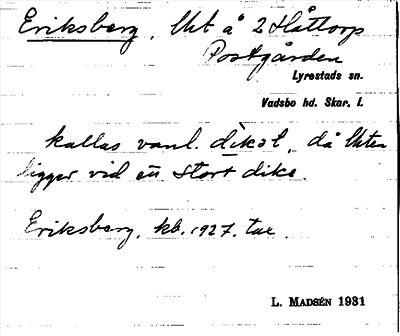 Eriksberg, lht å 2 Håttorp
Postgården
Lyrestads sn.
Vadsbo hd. Skar. l.
kallas vanl. dikət, då lhten
ligger vid ett stort dike.
Eriksberg, kb. 1927.
L. MADSÉN 1931